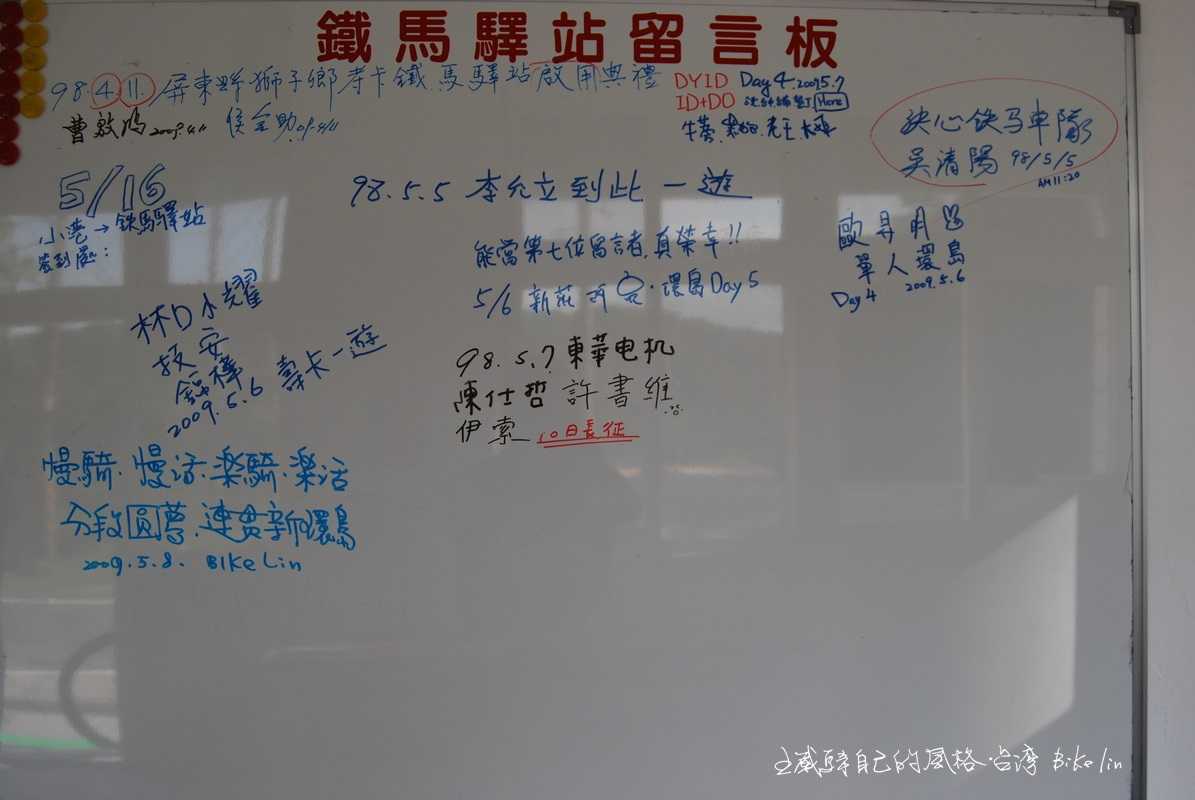 鐵馬驛站留言板
98.4.11.屏東縣獅子鄉壽卡鐵馬驛站啟用典禮
曹啟鴻 2009.4.11 侯全助 09.4/11
DYID Day4.2009.5.7
ID+DO Here
決心铁马車隊
吳清陽 98/5/5
AM11:20
5/16
小港→鉄馬驛站
簽到處:
98.5.5 李允立到此一遊
能當第七位留言者,真榮幸!!
5/6 新莊 環島Day5
歐昇明
單人環島
Day4 2009.5.6
林D小耀
2009.5.6 壽卡一遊
98.5.7 東華电机
陳仕哲 許書維
伊索 10日長征
慢騎.慢活.楽騎.樂活
分段圓夢.連贯新環島
2009.5.8. BIKeLin
自己的風格.台湾 Bikelin